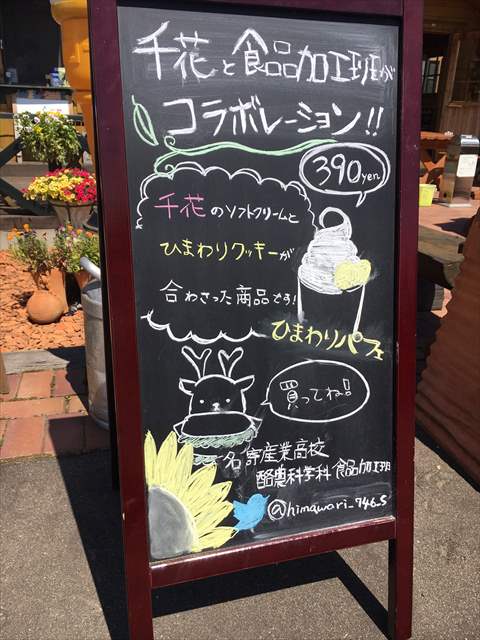 千花と食品加工班が
コラボレーション!!
390yen.
千花のソフトクリームと
ひまわりクッキーが
合わさった商品です!
ひまわりパフェ
買ってね!
名寄産業高校
酪農科学科 食品加工班
@himawari_746_S